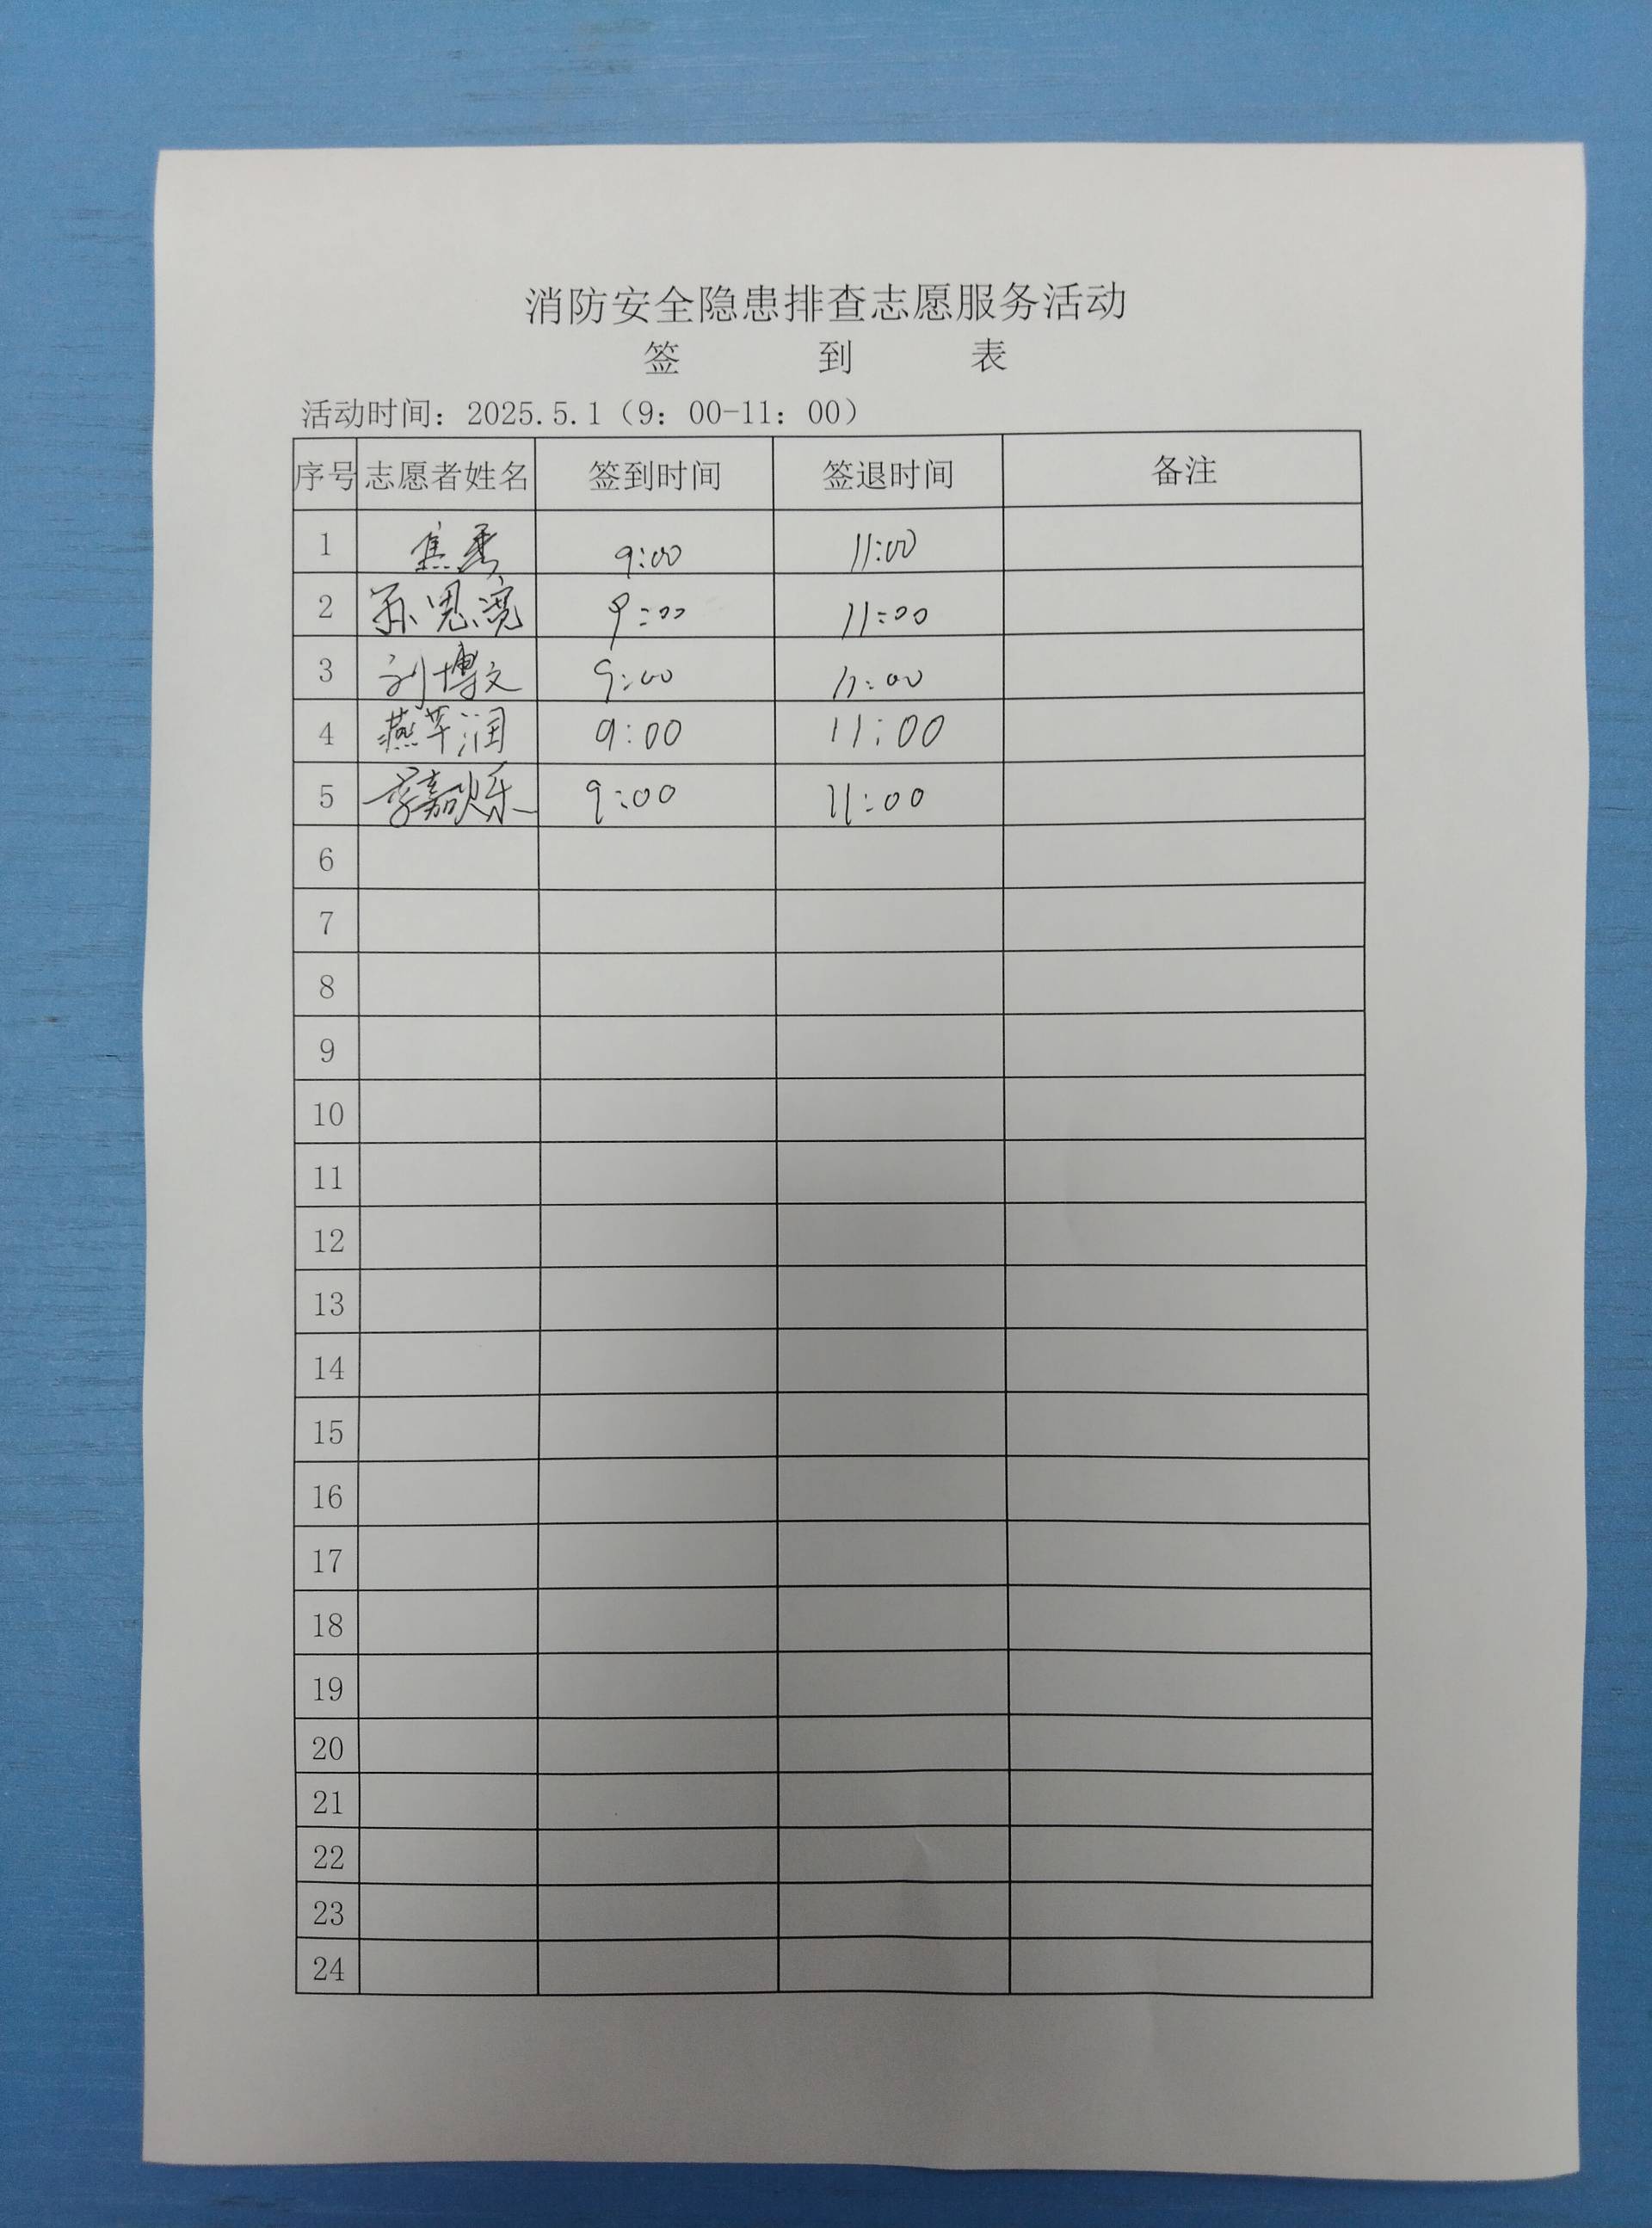 消防安全隐患排查志愿服务活动
签 到 表
活动时间：2025.5.1（9：00-11：00）
序号 志愿者姓名 签到时间 签退时间 备注
1 焦 9:00 11:00
2 苏思 9:00 11:00
3 刘博文 9:00 11:00
4 燕芊润 9:00 11:00
5 李嘉烁 9:00 11:00
6
7
8
9
10
11
12
13
14
15
16
17
18
19
20
21
22
23
24